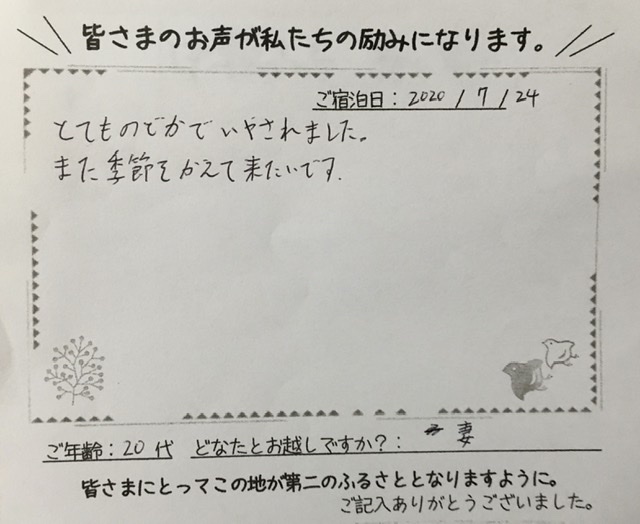 皆さまのお声が私たちの励みになります。
ご宿泊日：2020/7/24
とてものどかでいやされました。
また季節をかえて来たいです.
ご年齢：20代 どなたとお越しですか？： 妻
皆さまにとってこの地が第二のふるさととなりますように。
ご記入ありがとうございました。